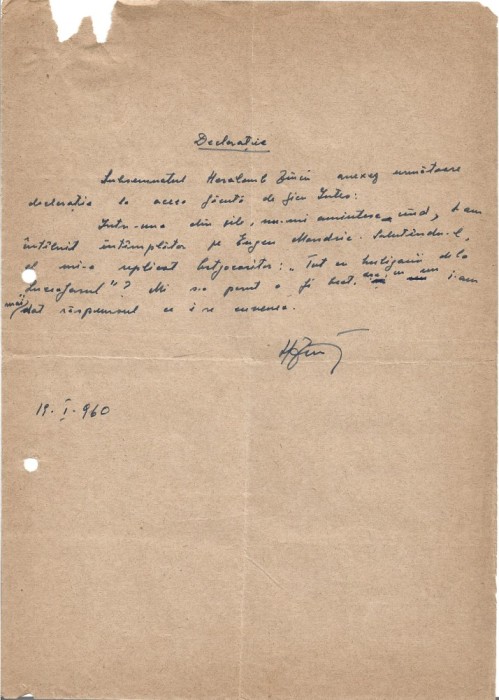 Declarație
Subsemnatul Haralamb Zincă anexez următoare
declarație la aceea făcută de Gicu
Într-una din zile, nu-mi amintesc când, l-am
întâlnit întâmplător pe Eugen Mandric. Salutându-l,
el mi-a replicat batjocoritor: „Tot cu huliganii de la
Luceafărul"? Mi s-a părut a fi beat. i-am
dat răspunsul ce i se cuvenea.
19. I. 960